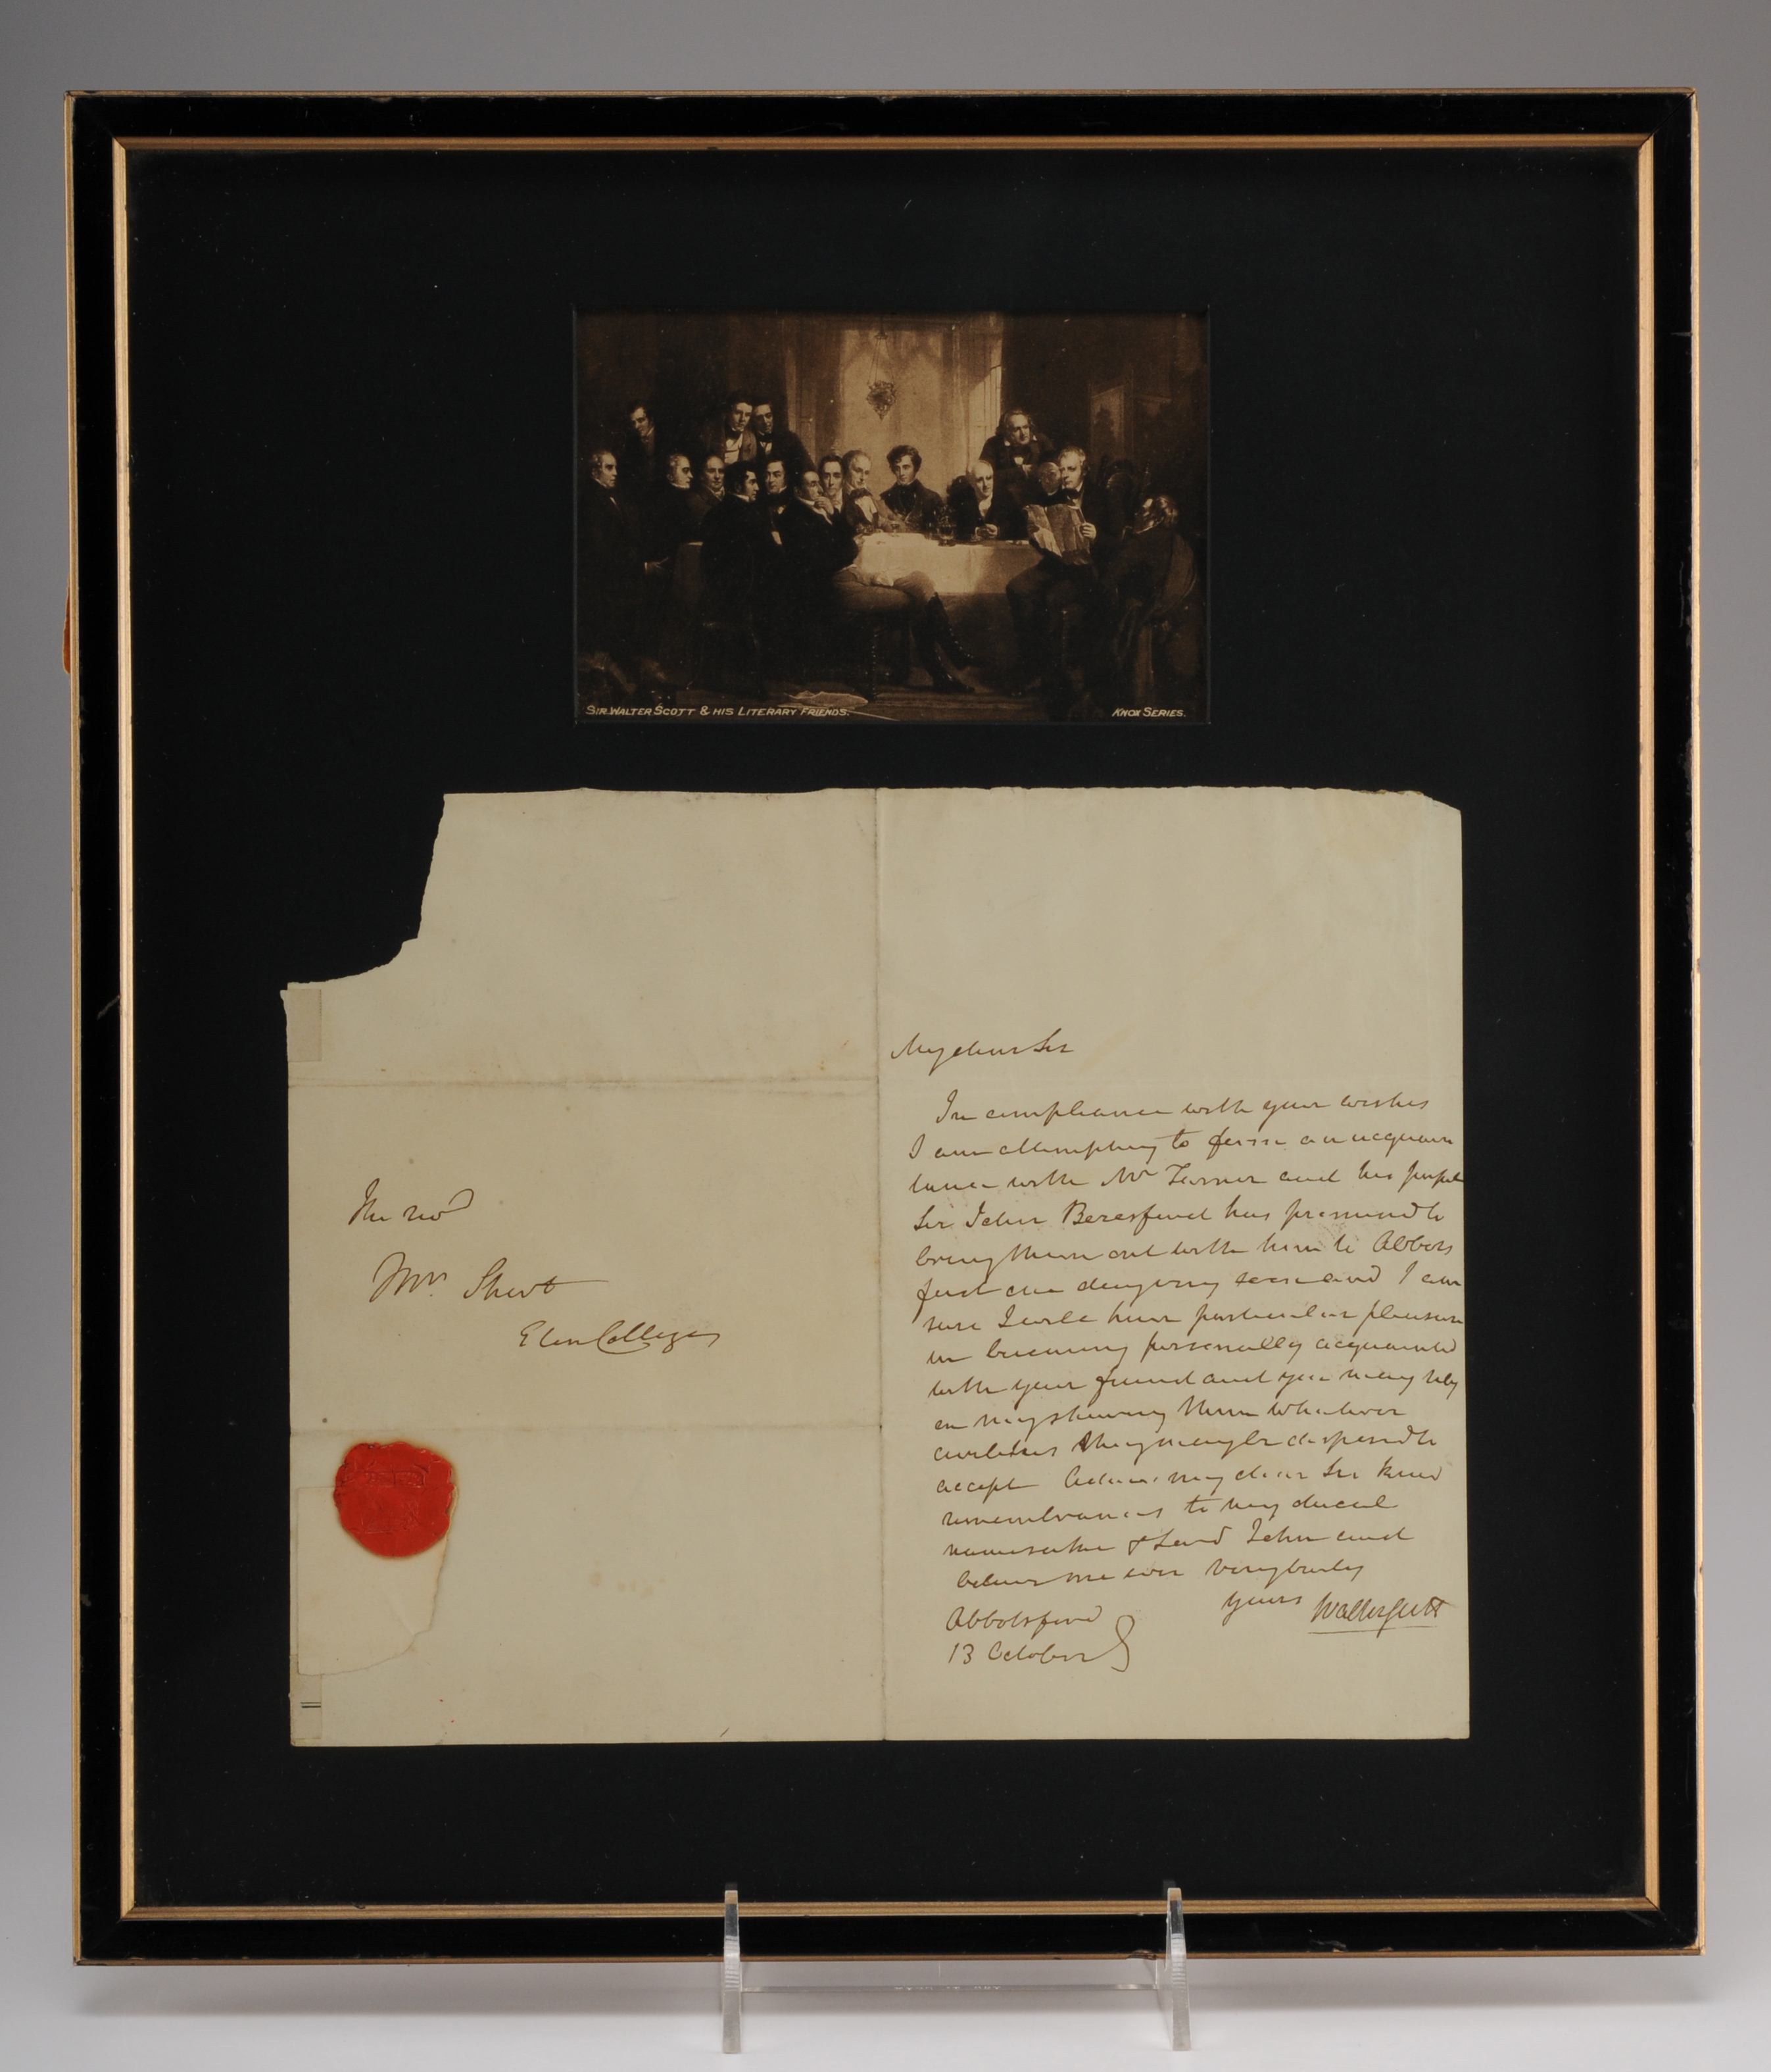 SIR WALTER SCOTT & HIS LITERARY FRIENDS.
KNOX SERIES.
The revd
Mr. Short
Eton College
My dear Sir
In compliance with your wishes
I am attempting to form an acquain
tance with Mr Turner and his pupil
Sir John Beresford has promised to
bring them out with him to Abbots
ford one day very soon and I am
sure I will have particular pleasure
in becoming personally acquainted
with your friend and you may rely
on my shewing them whatever
civilities they may be disposed to
accept Adieu my dear Sir kind
remembrances to my ducal
namesake & Lord John and
believe me ever very truly
yours Walter Scott
Abbotsford
13 October